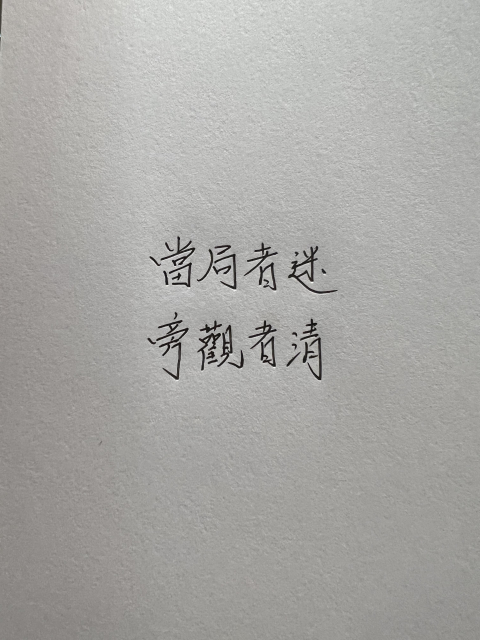 當局者迷
旁觀者清